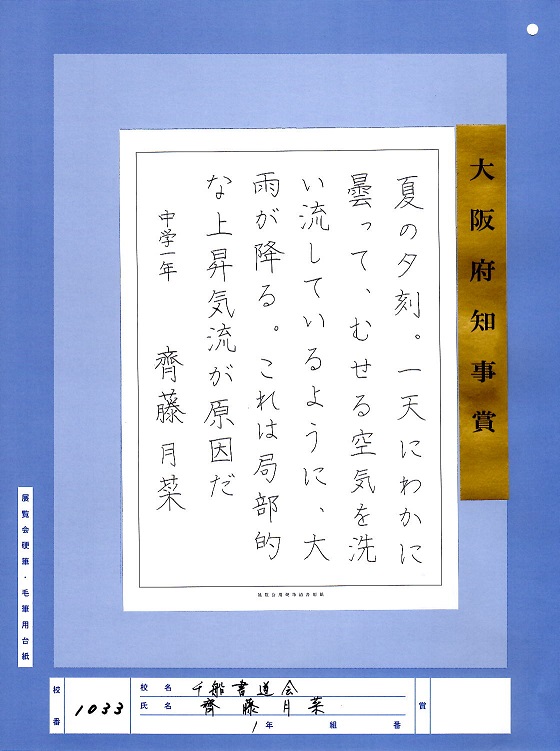 大阪府知事賞
夏の夕刻。一天にわかに
曇って、むせる空気を洗
い流しているように、大
雨が降る。これは局部的
な上昇気流が原因だ
中学一年 齊藤月菜
展覧会硬筆・毛筆用台紙
校番 1033
校名 千船書道会
氏名 齊藤月菜
1年 組 番
賞